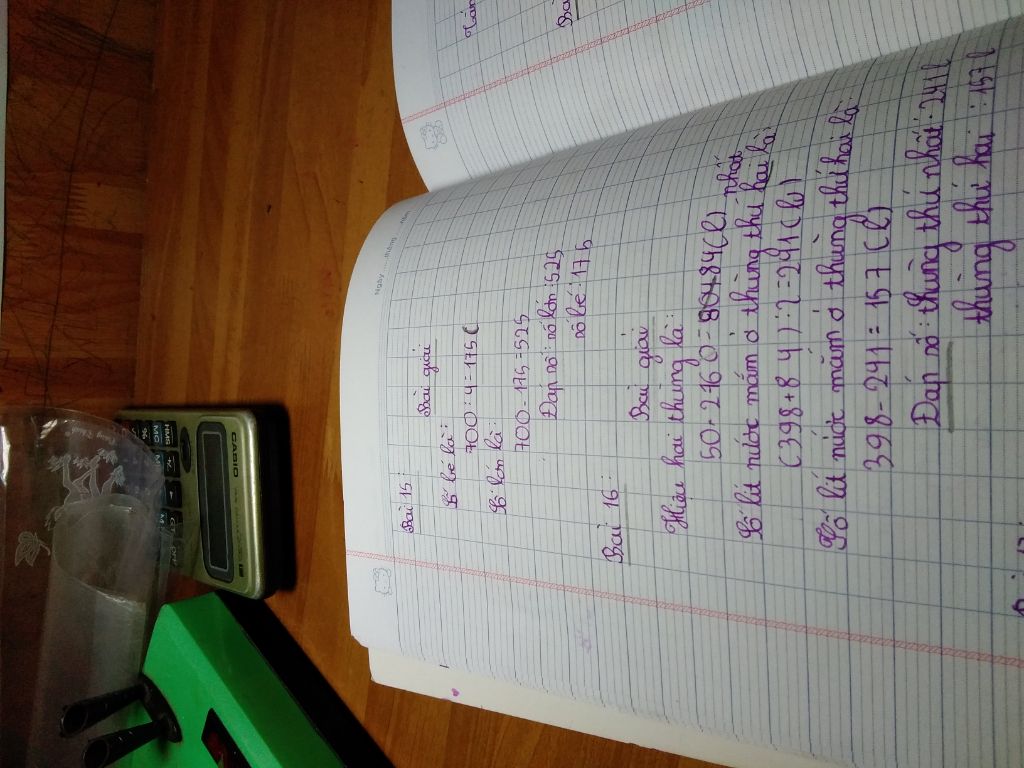 Bài 15:
Bài giải
Số bé là:
700:4=175
Số lớn là:
700-175=525
Đáp số: số lớn:525
số bé:175
Bài 16:
Bài giải
Hiệu hai thùng là:
50.2-16.0=84(l)
Số lít nước mắm ở thùng thứ nhất là
(398+84):2=241(l)
Số lít nước mắm ở thùng thứ hai là
398-241=157(l)
Đáp số: thùng thứ nhất:241l
thùng thứ hai:157l
CASIO